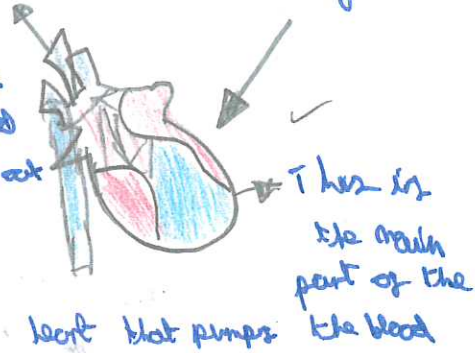 out
This is
the main
part of the
heart that pumps the blood